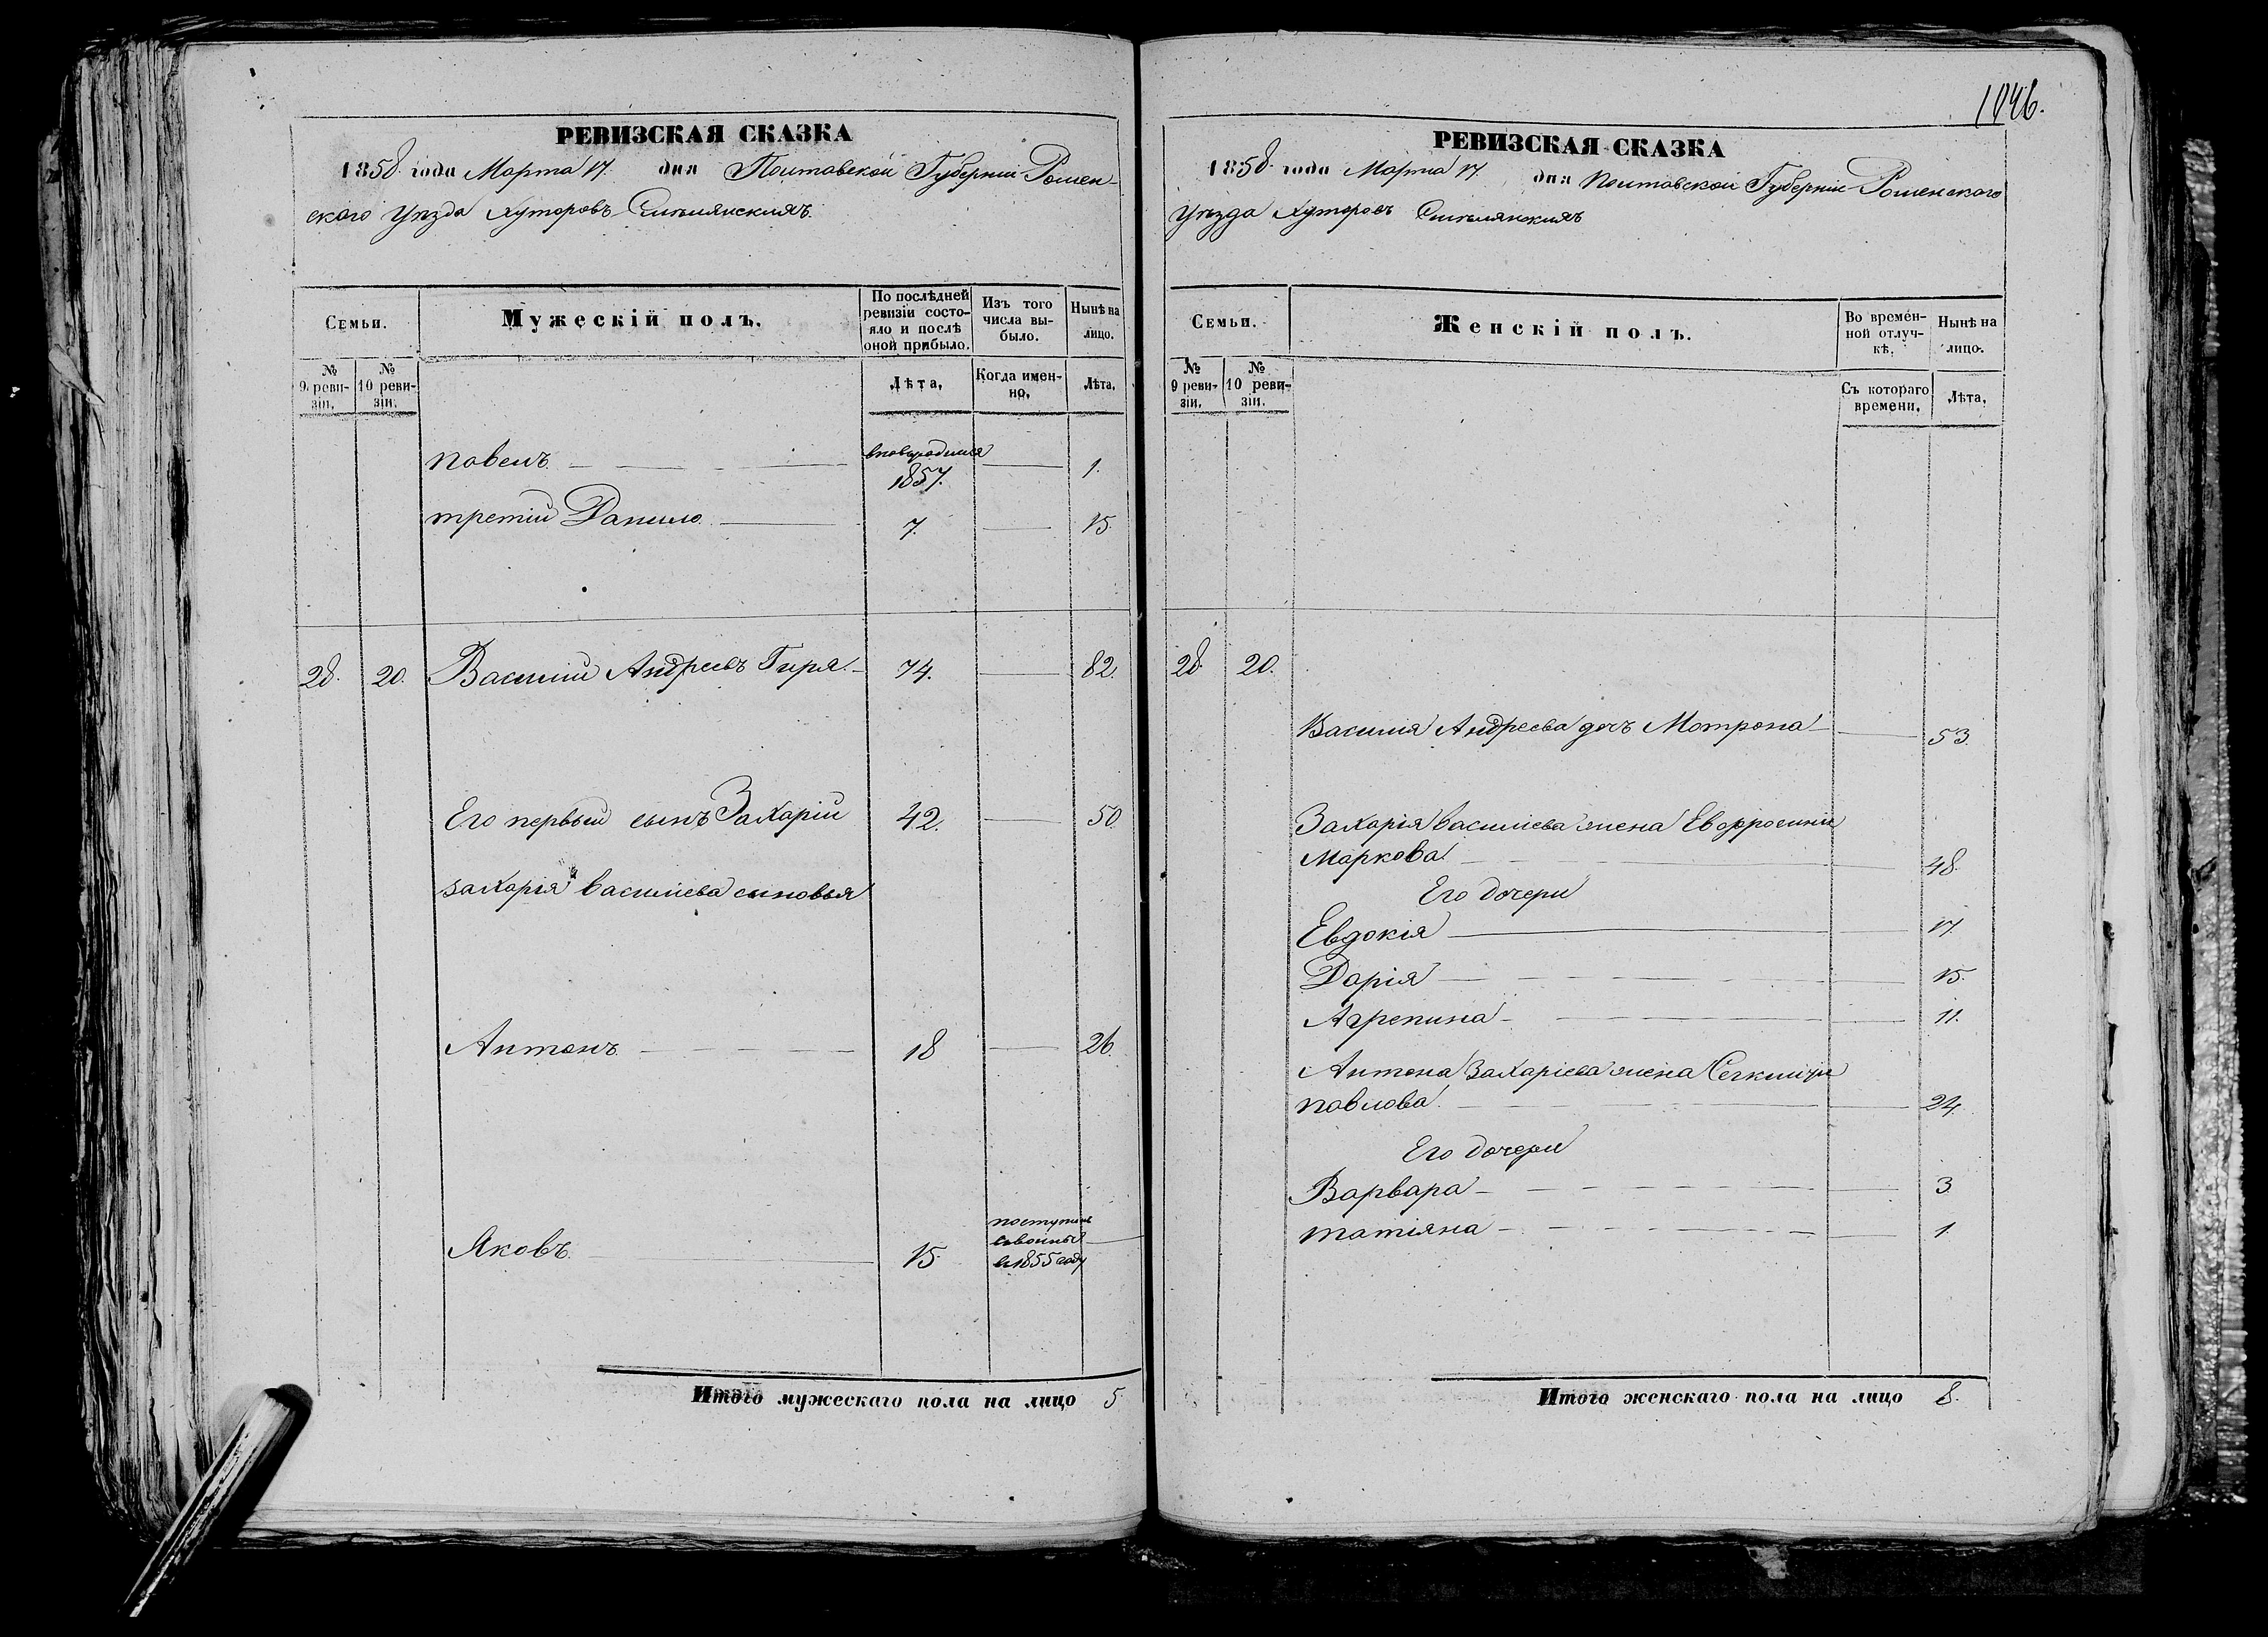 1046.
РЕВИЗСКАЯ СКАЗКА
1858 года Марта 17. дня Полтавской Губерніи Ромен-
ского Уѣзда Хуторовъ
Семьи.
Мужескій полъ.
По послѣдней ревизіи состояло и послѣ оной прибыло.
Изъ того числа выбыло.
Нынѣ на лицо.
№ 9 ревизіи.
№ 10 ревизіи.
Лѣта,
Когда именно,
Лѣта,
павелъ
вновьродился 1857. 1.
третій Данило 7. 15
28. 20. Василій Андреевъ Гиря 74. 82.
Его первый сынъ Захарій 42. 50.
захарія василіева сыновья
Антонъ 18 26.
Яковъ. 15
поступилъ
в 1855 году
Итого мужескаго пола на лицо 5
РЕВИЗСКАЯ СКАЗКА
1858 года Марта 17. дня Полтавской Губерніи Роменского
Уѣзда Хуторовъ
Семьи.
Женскій полъ.
Во временной отлучкѣ.
Нынѣ на лицо.
№ 9 ревизіи.
№ 10 ревизіи.
Съ котораго времени,
Лѣта,
28. 20.
Василія Андреева дочъ Мотрона 53.
Захарія василіева жена Евфросинія
Маркова 48.
Его дочери
Евдокія 17.
Дарія 15.
Агрепина 11.
Антона Захаріева жена
павлова 24.
Его дочери
Варвара 3
татіяна 1.
Итого женскаго пола на лицо 8.